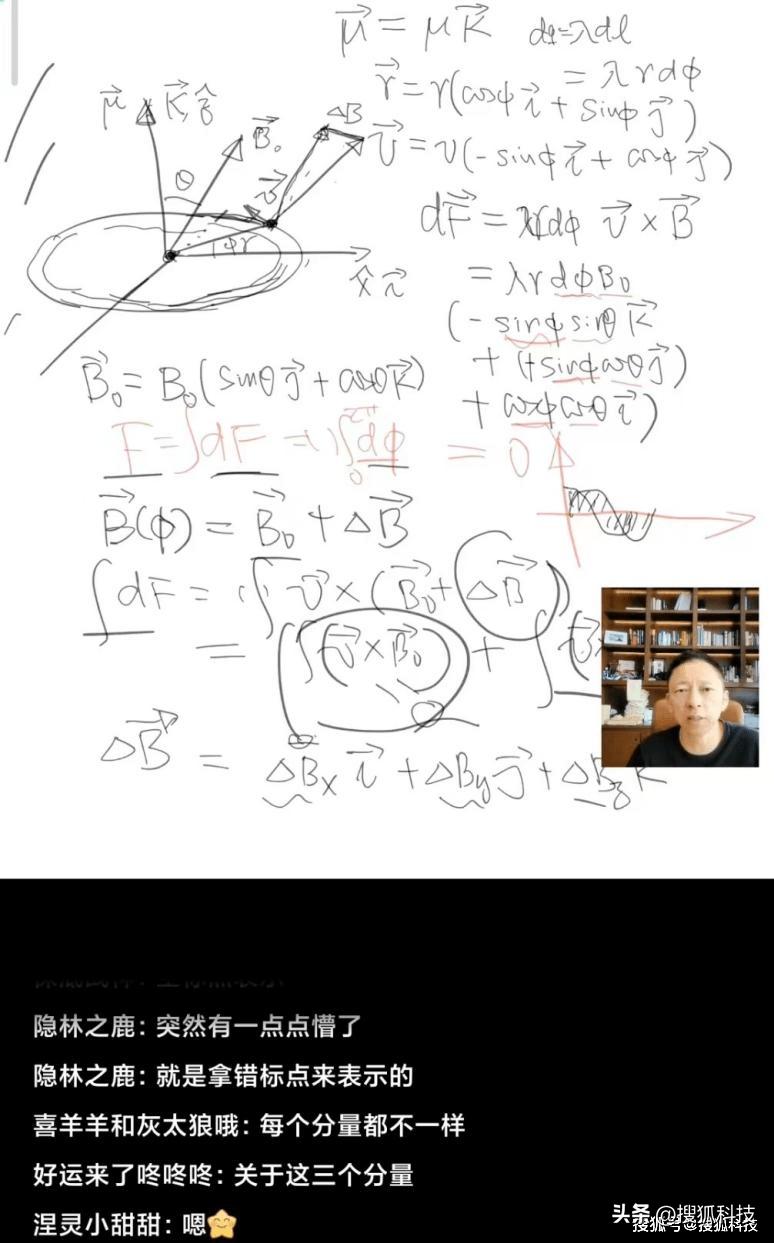 μ⃗ = μ k⃗ dq=λdl
r⃗ = r(cosφ i⃗ + sinφ j⃗) = λrdφ
v⃗ = v(-sinφ i⃗ + cosφ j⃗)
μ⃗ k⃗ ẑ B⃗₀ ΔB
θ v⃗
φ r
x̂ i⃗
dF⃗ = λrdφ v⃗ × B⃗
= λrdφB₀
(-sinφsinθ k⃗
+ (+sinφcosθ j⃗)
+ cosφcosθ i⃗)
B⃗₀ = B₀(sinθ j⃗ + cosθ k⃗)
F = ∫dF = ( ) ∫ dφ = 0
0
B⃗(φ) = B⃗₀ + ΔB⃗
∫dF = ( ) ∫ v⃗ × (B⃗₀ + ΔB⃗)
= ∫(v⃗ × B⃗₀) + ∫ v⃗ ×
ΔB⃗ = ΔBₓ i⃗ + ΔBy j⃗ + ΔBz k
隐林之鹿: 突然有一点点懵了
隐林之鹿: 就是拿错标点来表示的
喜羊羊和灰太狼哦: 每个分量都不一样
好运来了咚咚咚: 关于这三个分量
涅灵小甜甜: 嗯⭐
头条 @搜狐科技
搜狐号@搜狐科技